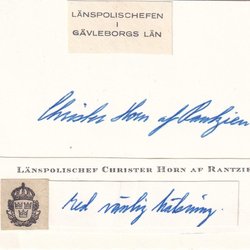 LÄNSPOLISCHEFEN
I
GÄVLEBORGS LÄN
Christer Horn af Rantzien
LÄNSPOLISCHEF CHRISTER HORN AF RANTZIE
Med vänlig hälsning